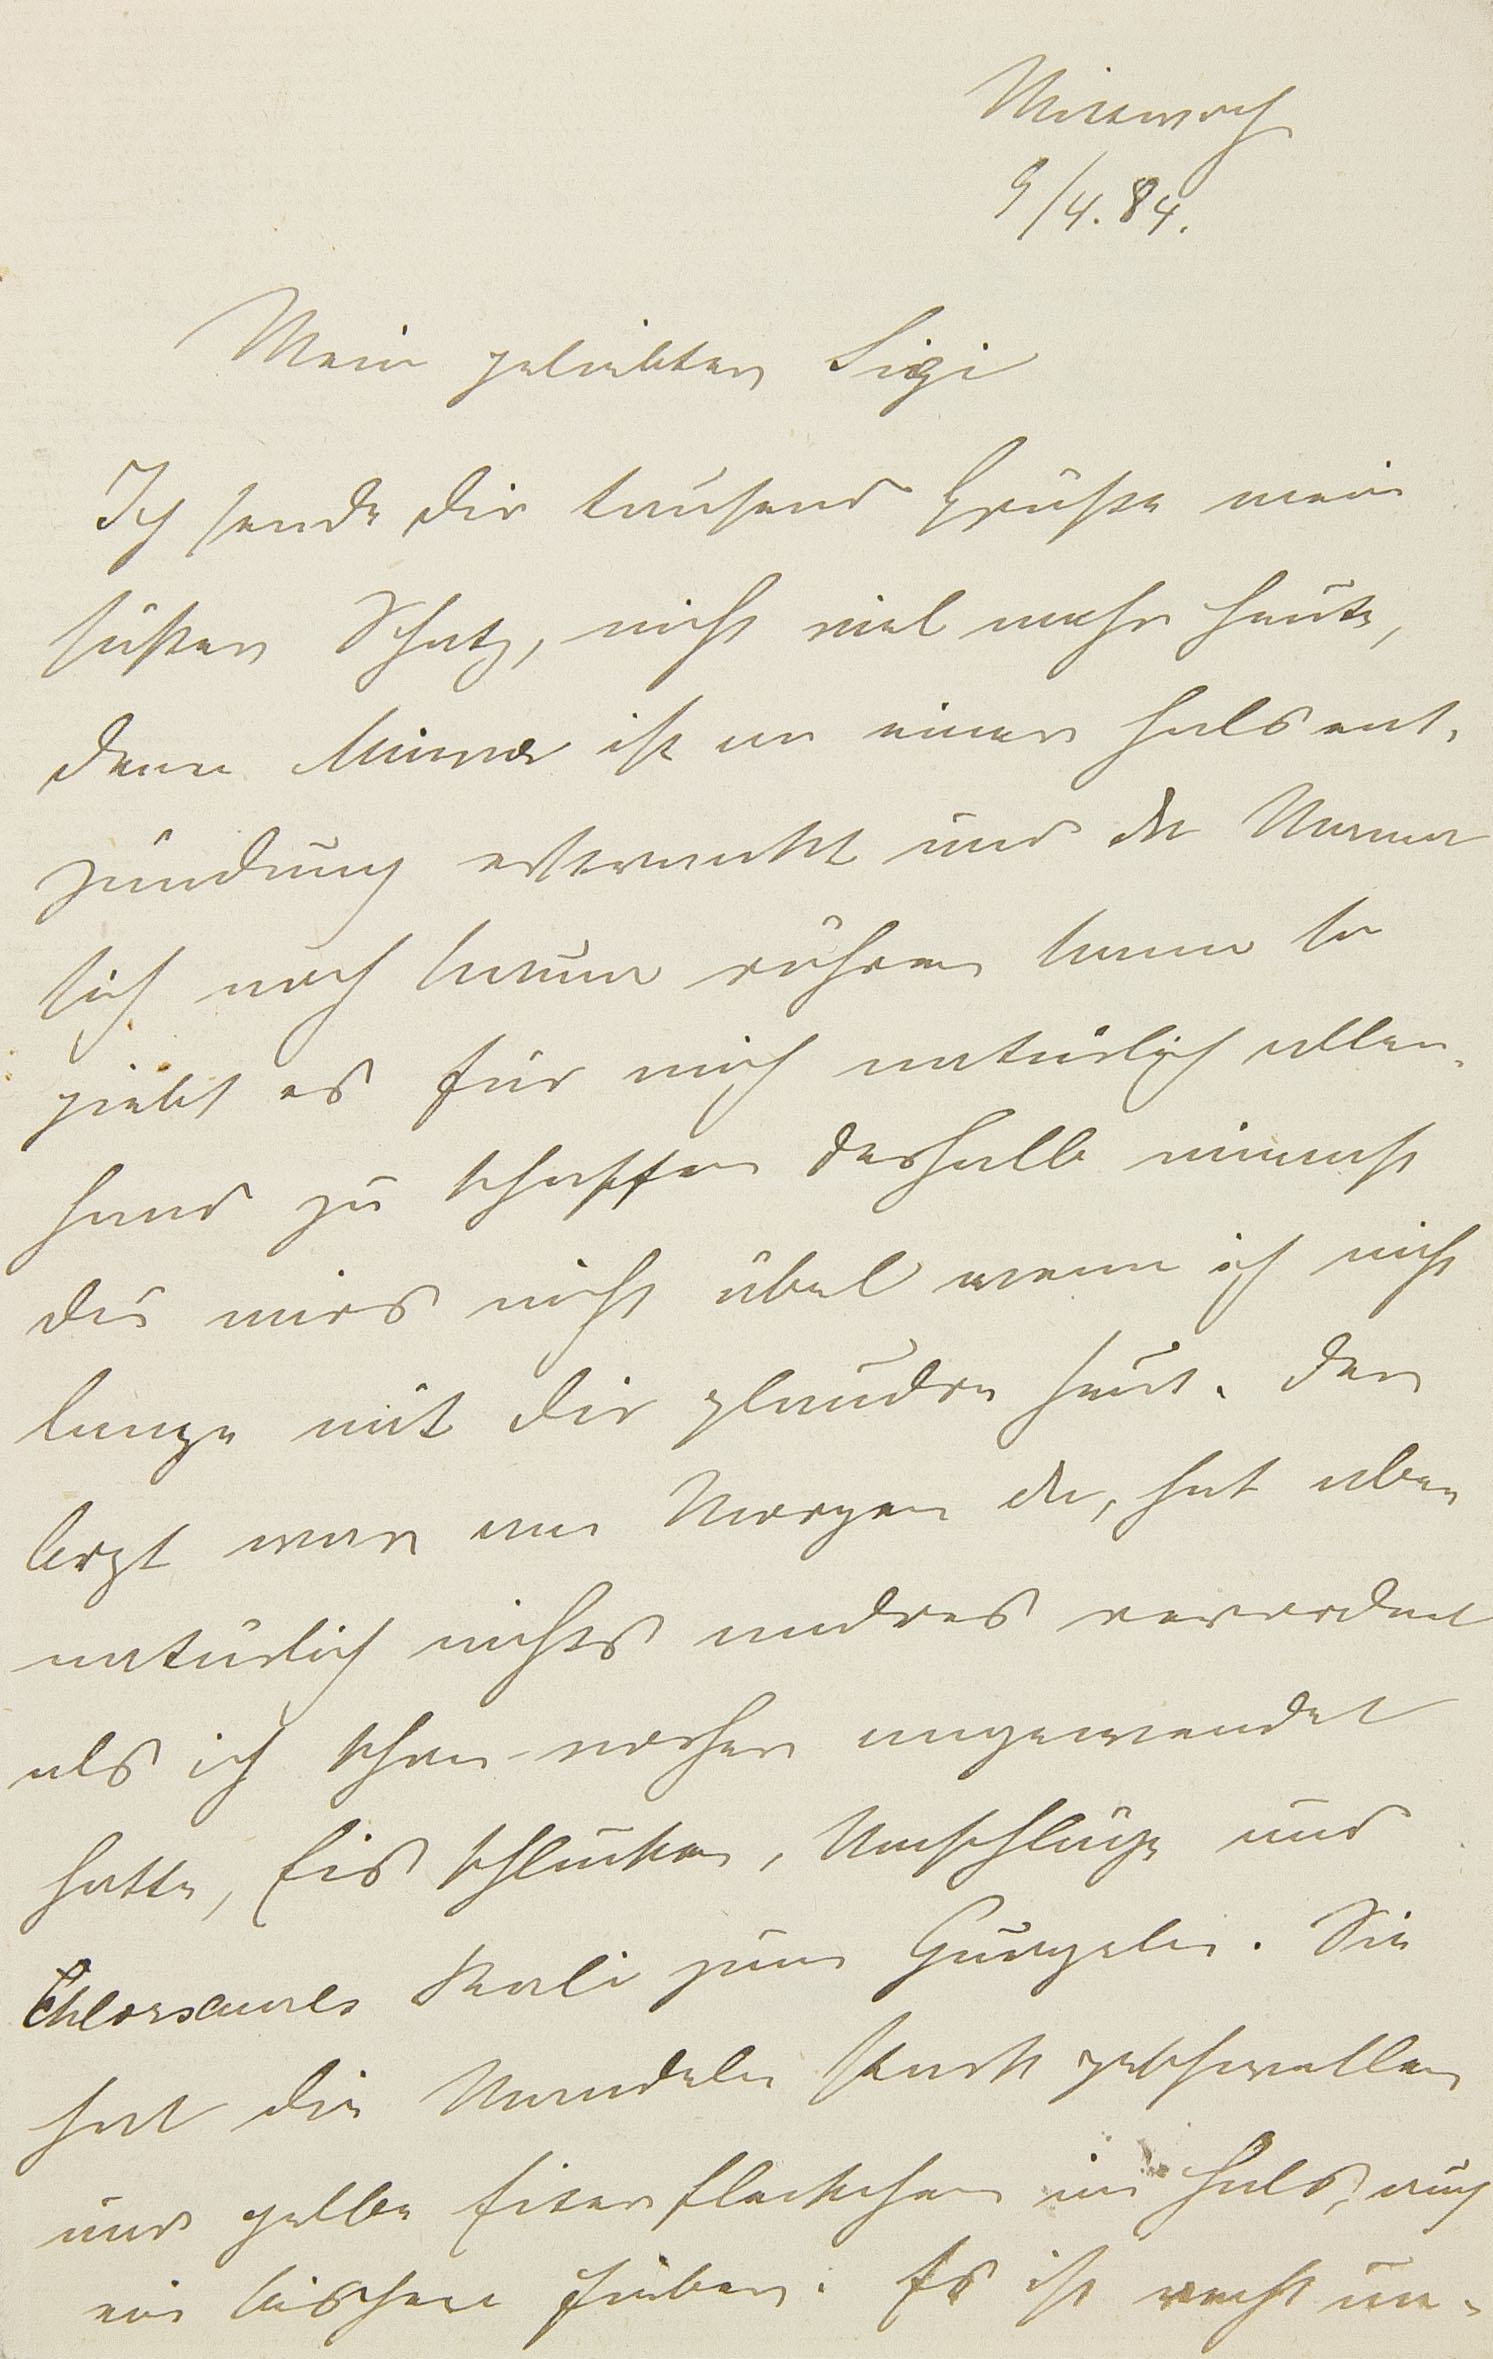 Mittwoch
9/4. 84.
Mein geliebter Sigi
Ich sende Dir tausend Grüße mein
süßer Schatz, nicht viel mehr heute,
denn Minna ist an einer Halsent-
zündung erkrankt und da Mama
sich noch kaum rühren kann so
giebt es für mich natürlich aller-
hand zu schaffen deshalb nimmst
du mirs nicht übel wenn ich nicht
lange mit Dir plaudre heut. Der
Arzt war am Morgen da, hat aber
natürlich nichts andres verordnet
als ich schon vorher angewendet
hatte, Eis schlucken, Umschläge und
Chlorsaures Kali zum Gurgeln. Sie
hat die Mandeln stark geschwollen
und gelbe Eiterfleckchen im Hals, auch
ein bischen Fieber. Es ist recht un-